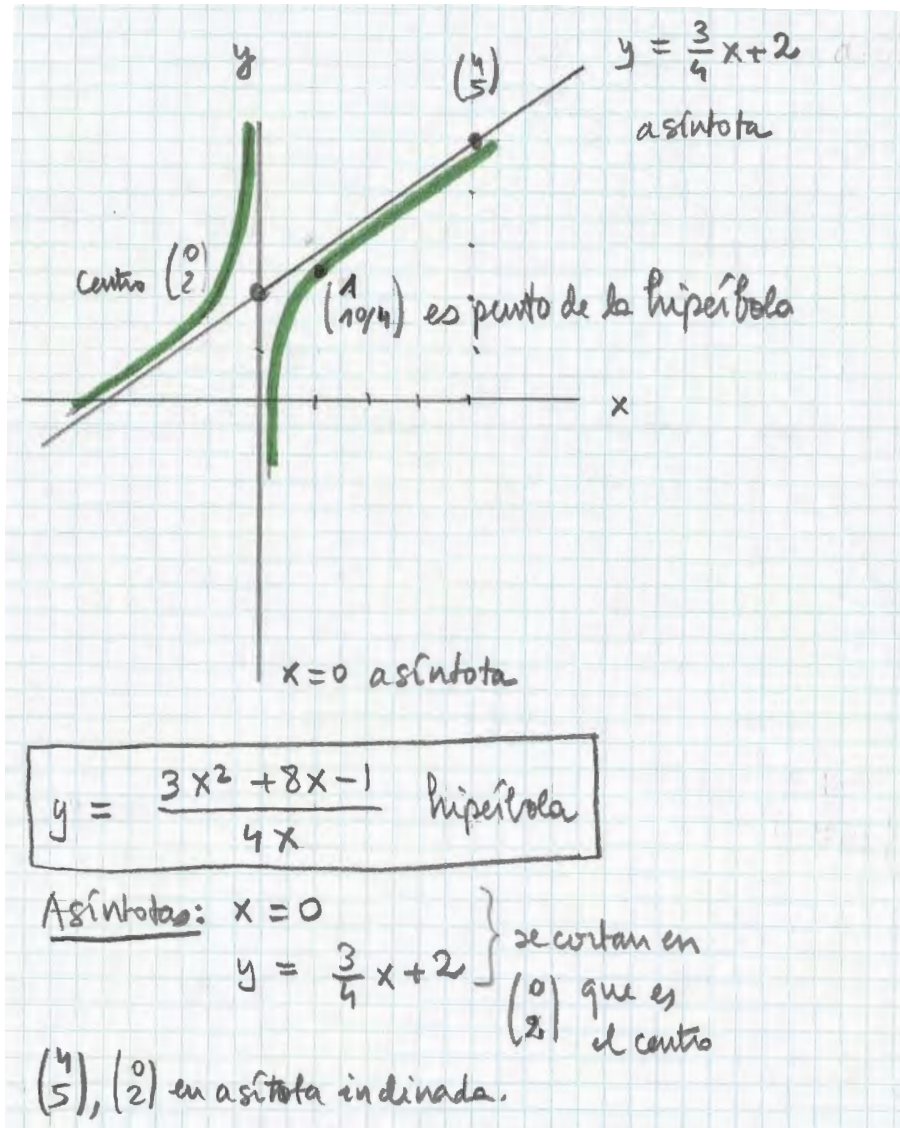 y
(4
5)
y = 3/4 x + 2
asíntota
centro (0
2)
(1
10/4) es punto de la hipérbola
x
x = 0 asíntota
y = (3x² + 8x - 1)/(4x) hipérbola
Asíntotas: x = 0
y = 3/4 x + 2
se cortan en
(0
2) que es
el centro
(4
5), (0
2) en asítota inclinada.